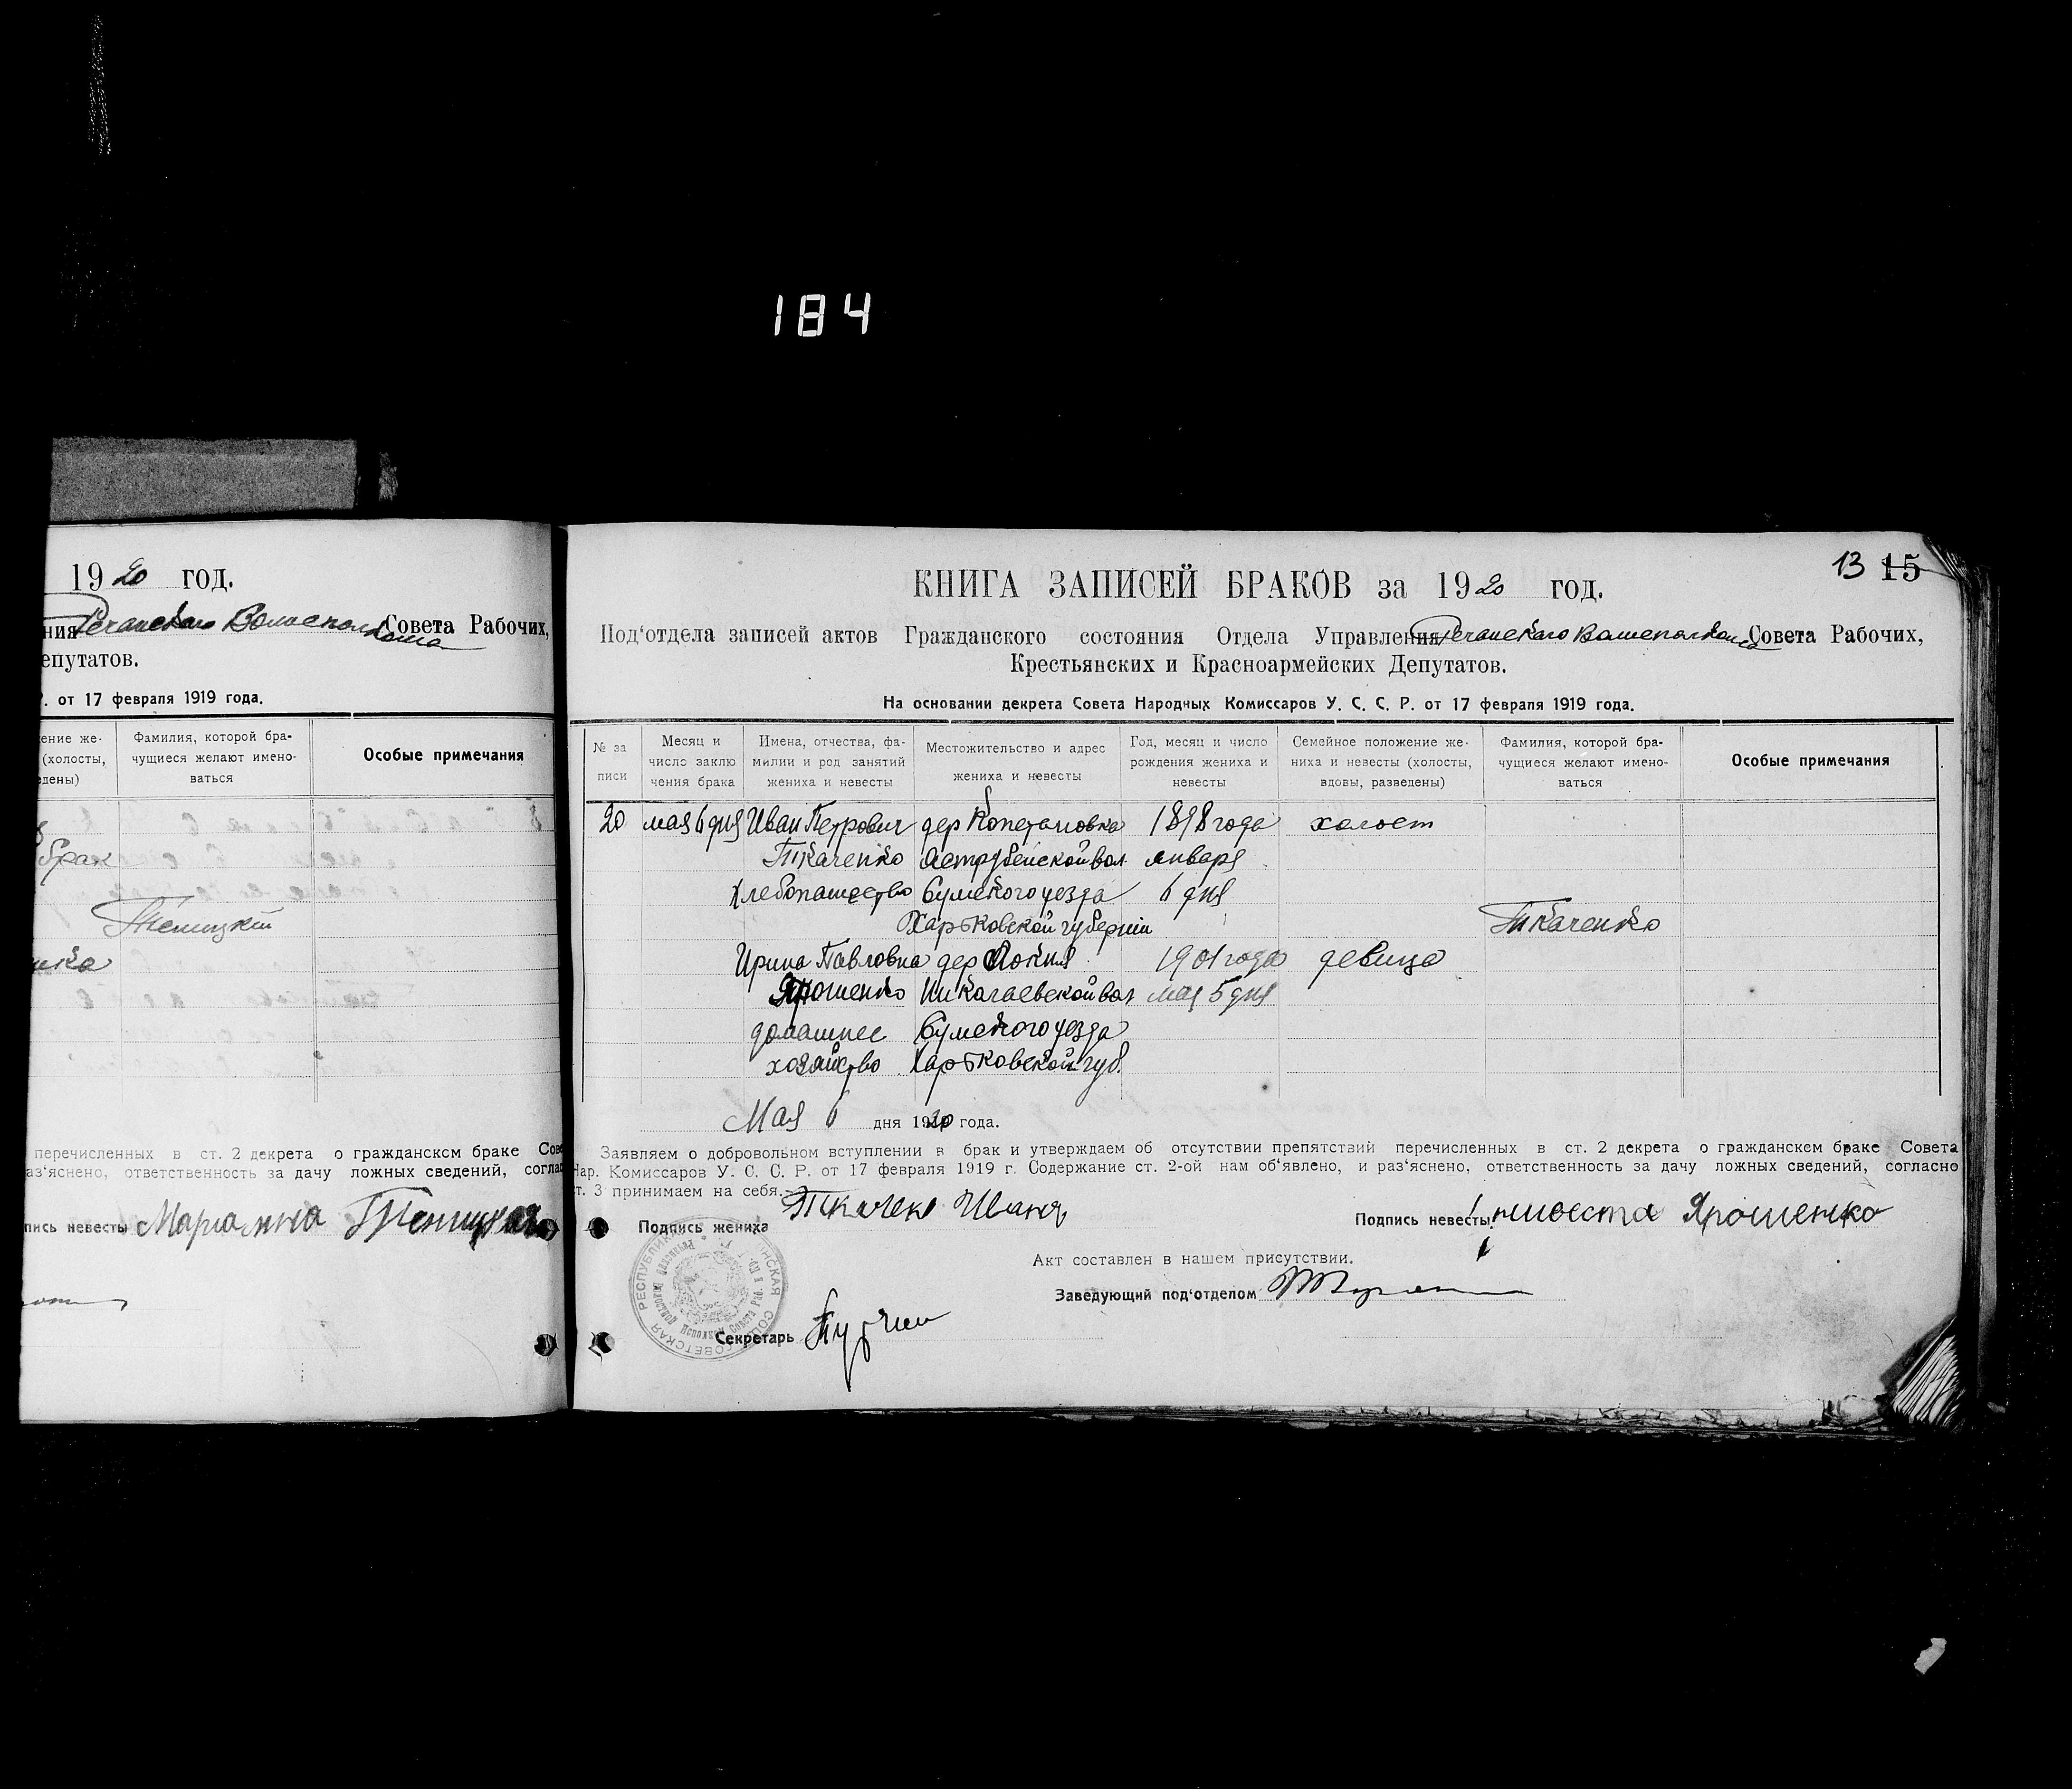 184
1920 год.
ния Речанского Волисполкома Совета Рабочих,
епутатов.
Р. от 17 февраля 1919 года.
ение же-
(холосты,
едены)
Фамилия, которой бра-
чущиеся желают имено-
ваться
Особые примечания
брак
нко
перечисленных в ст. 2 декрета о гражданском браке Сове
раз‘яснено, ответственность за дачу ложных сведений, соглас
пись невесты Мариамна
13 15
КНИГА ЗАПИСЕЙ БРАКОВ за 1920 год.
Под‘отдела записей актов Гражданского состояния Отдела Управления Речанского Волисполкома Совета Рабочих,
Крестьянских и Красноармейских Депутатов.
На основании декрета Совета Народных Комиссаров У. С. С. Р. от 17 февраля 1919 года.
№ за
писи
Месяц и
число заклю
чения брака
Имена, отчества, фа-
милии и род занятий
жениха и невесты
Местожительство и адрес
жениха и невесты
Год, месяц и число
рождения жениха и
невесты
Семейное положение же-
ниха и невесты (холосты,
вдовы, разведены)
Фамилия, которой бра-
чущиеся желают имено-
ваться
Особые примечания
20 мая 6 дня Иван Петрович дер 1898 года холост
Ткаченко вол. января
хлебопашество Сумского уезда 6 дня
Харьковской губернии Ткаченко
Ирина Павловна дер Локня 1901 года девица
Ярошенко Николаевской вол мая 5 дня
домашнее Сумского уезда
хозяйство Харьковской губ.
Мая 6 дня 1920 года.
Заявляем о добровольном вступлении в брак и утверждаем об отсутствии препятствий перечисленных в ст. 2 декрета о гражданском браке Совета
Нар. Комиссаров У. С. С. Р. от 17 февраля 1919 г. Содержание ст. 2-ой нам об‘явлено, и раз‘яснено, ответственность за дачу ложных сведений, согласно
ст. 3 принимаем на себя.
Подпись жениха
Подпись невесты Ярошенко
Акт составлен в нашем присутствии.
Заведующий под‘отделом
Секретарь